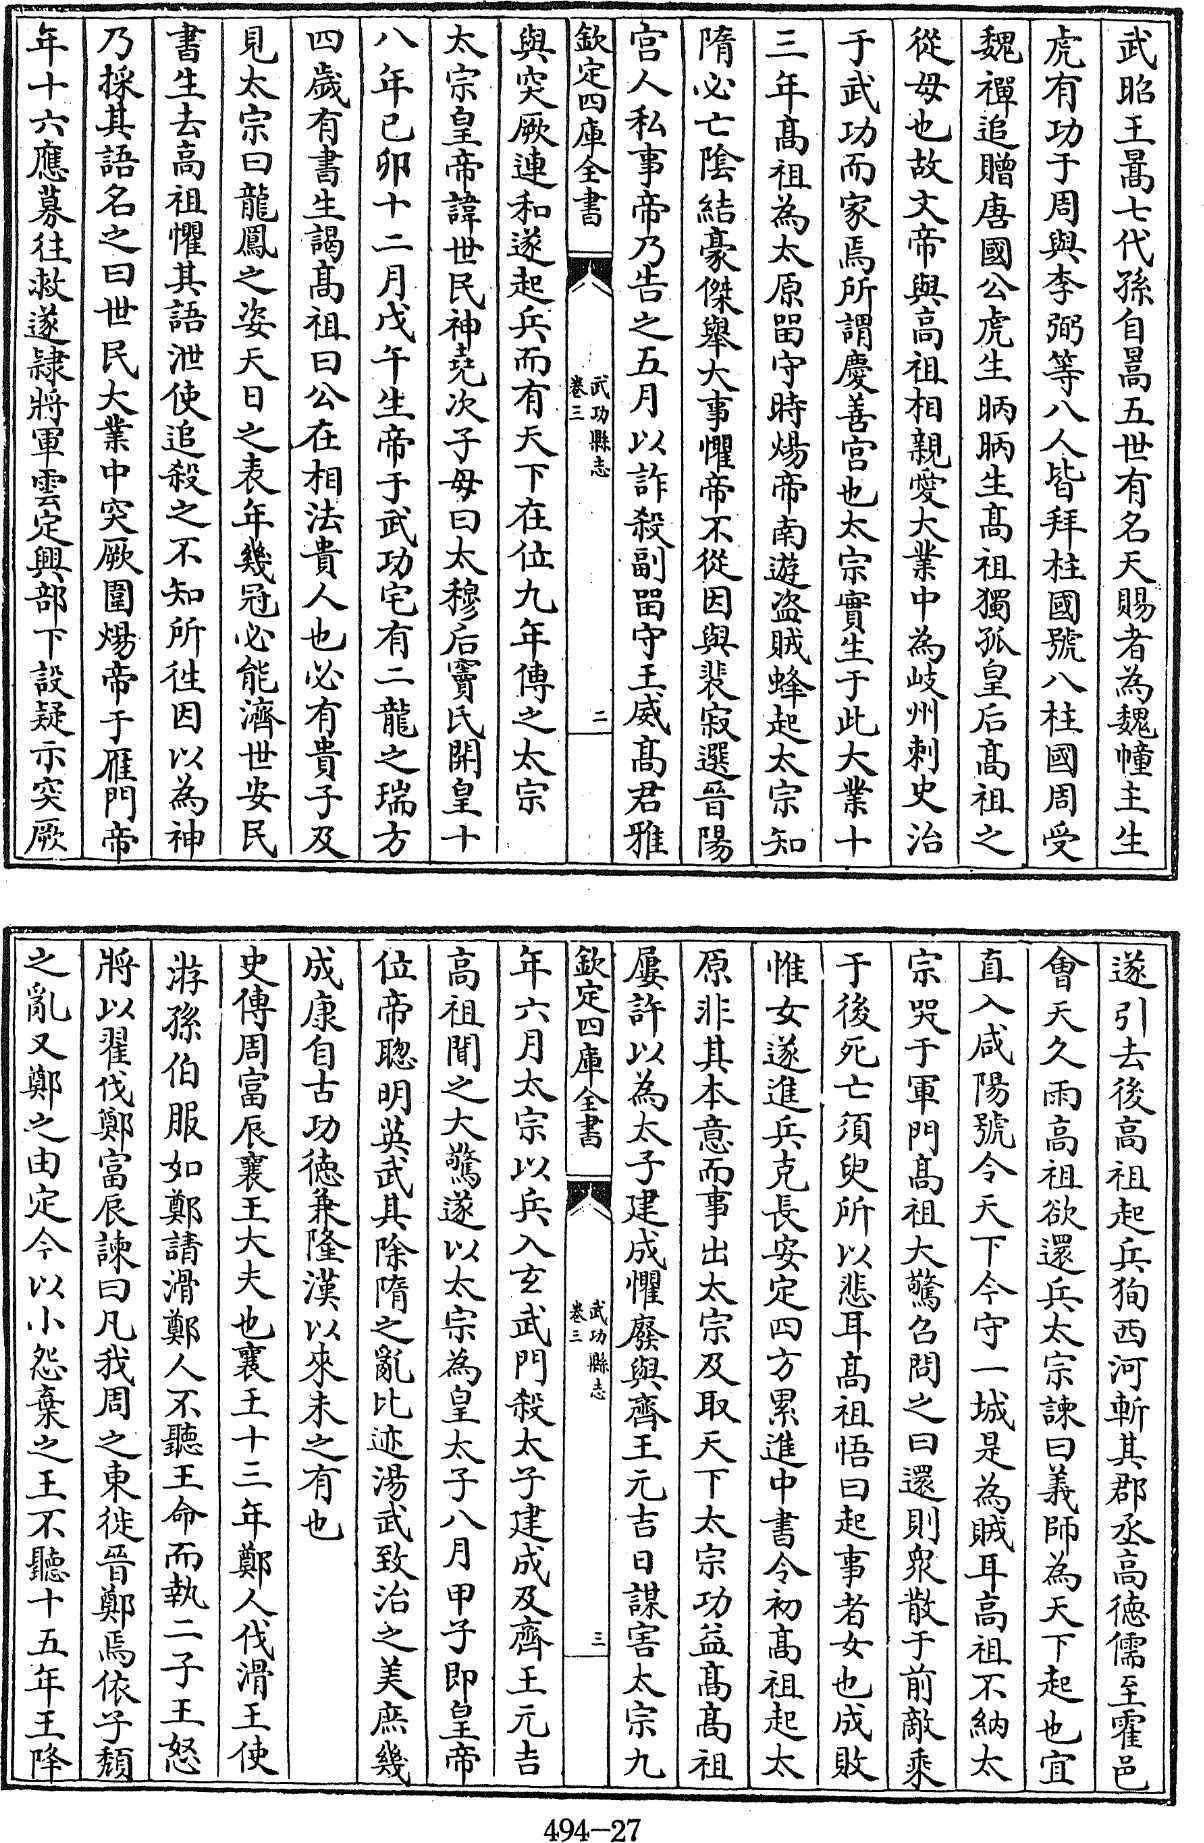 武昭王暠七代孫自暠五世有名天賜者為魏幢主生
虎有功于周與李弼等八人皆拜柱國號八柱國周受
魏禪追贈唐國公虎生昞昞生髙祖獨孤皇后髙祖之
從母也故文帝與高祖相親愛大業中為岐州刺史治
于武功而家焉所謂慶善宮也太宗實生于此大業十
三年髙祖為太原畱守時煬帝南遊盗賊蜂起太宗知
隋必亡陰結豪傑舉大事懼帝不從因與裴寂選晉陽
宫人私事帝乃告之五月以詐殺副畱守王威髙君雅
欽定四庫全書
武功縣志
卷三
二
與突厥連和遂起兵而有天下在位九年傳之太宗
太宗皇帝諱世民神堯次子母曰太穆后竇氏開皇十
八年己卯十二月戊午生帝于武功宅有二龍之瑞方
四歲有書生謁髙祖曰公在相法貴人也必有貴子及
見太宗曰龍鳳之姿天日之表年幾冠必能濟世安民
書生去高祖懼其語泄使追殺之不知所往因以為神
乃採其語名之曰世民大業中突厥圍煬帝于雁門帝
年十六應募往救遂隸將軍雲定興部下設疑示突厥
遂引去後高祖起兵狥西河斬其郡丞高德儒至霍邑
會天久雨高祖欲還兵太宗諫曰義師為天下起也宜
直入咸陽號令天下今守一城是為賊耳高祖不納太
宗哭于軍門髙祖大驚召問之曰還則衆散于前敵乘
于後死亡須臾所以悲耳髙祖悟曰起事者女也成敗
惟女遂進兵克長安定四方累進中書令初髙祖起太
原非其本意而事出太宗及取天下太宗功益髙髙祖
屢許以為太子建成懼廢與齊王元吉日謀害太宗九
欽定四庫全書
武功縣志
卷三
三
年六月太宗以兵入玄武門殺太子建成及齊王元吉
高祖聞之大驚遂以太宗為皇太子八月甲子即皇帝
位帝聰明英武其除隋之亂比迹湯武致治之美庶幾
成康自古功德兼隆漢以來未之有也
史傳周富辰襄王大夫也襄王十三年鄭人伐滑王使
游孫伯服如鄭請滑鄭人不聽王命而執二子王怒
將以翟伐鄭富辰諫曰凡我周之東徙晉鄭焉依子頽
之亂又鄭之由定今以小怨棄之王不聽十五年王降
494-27